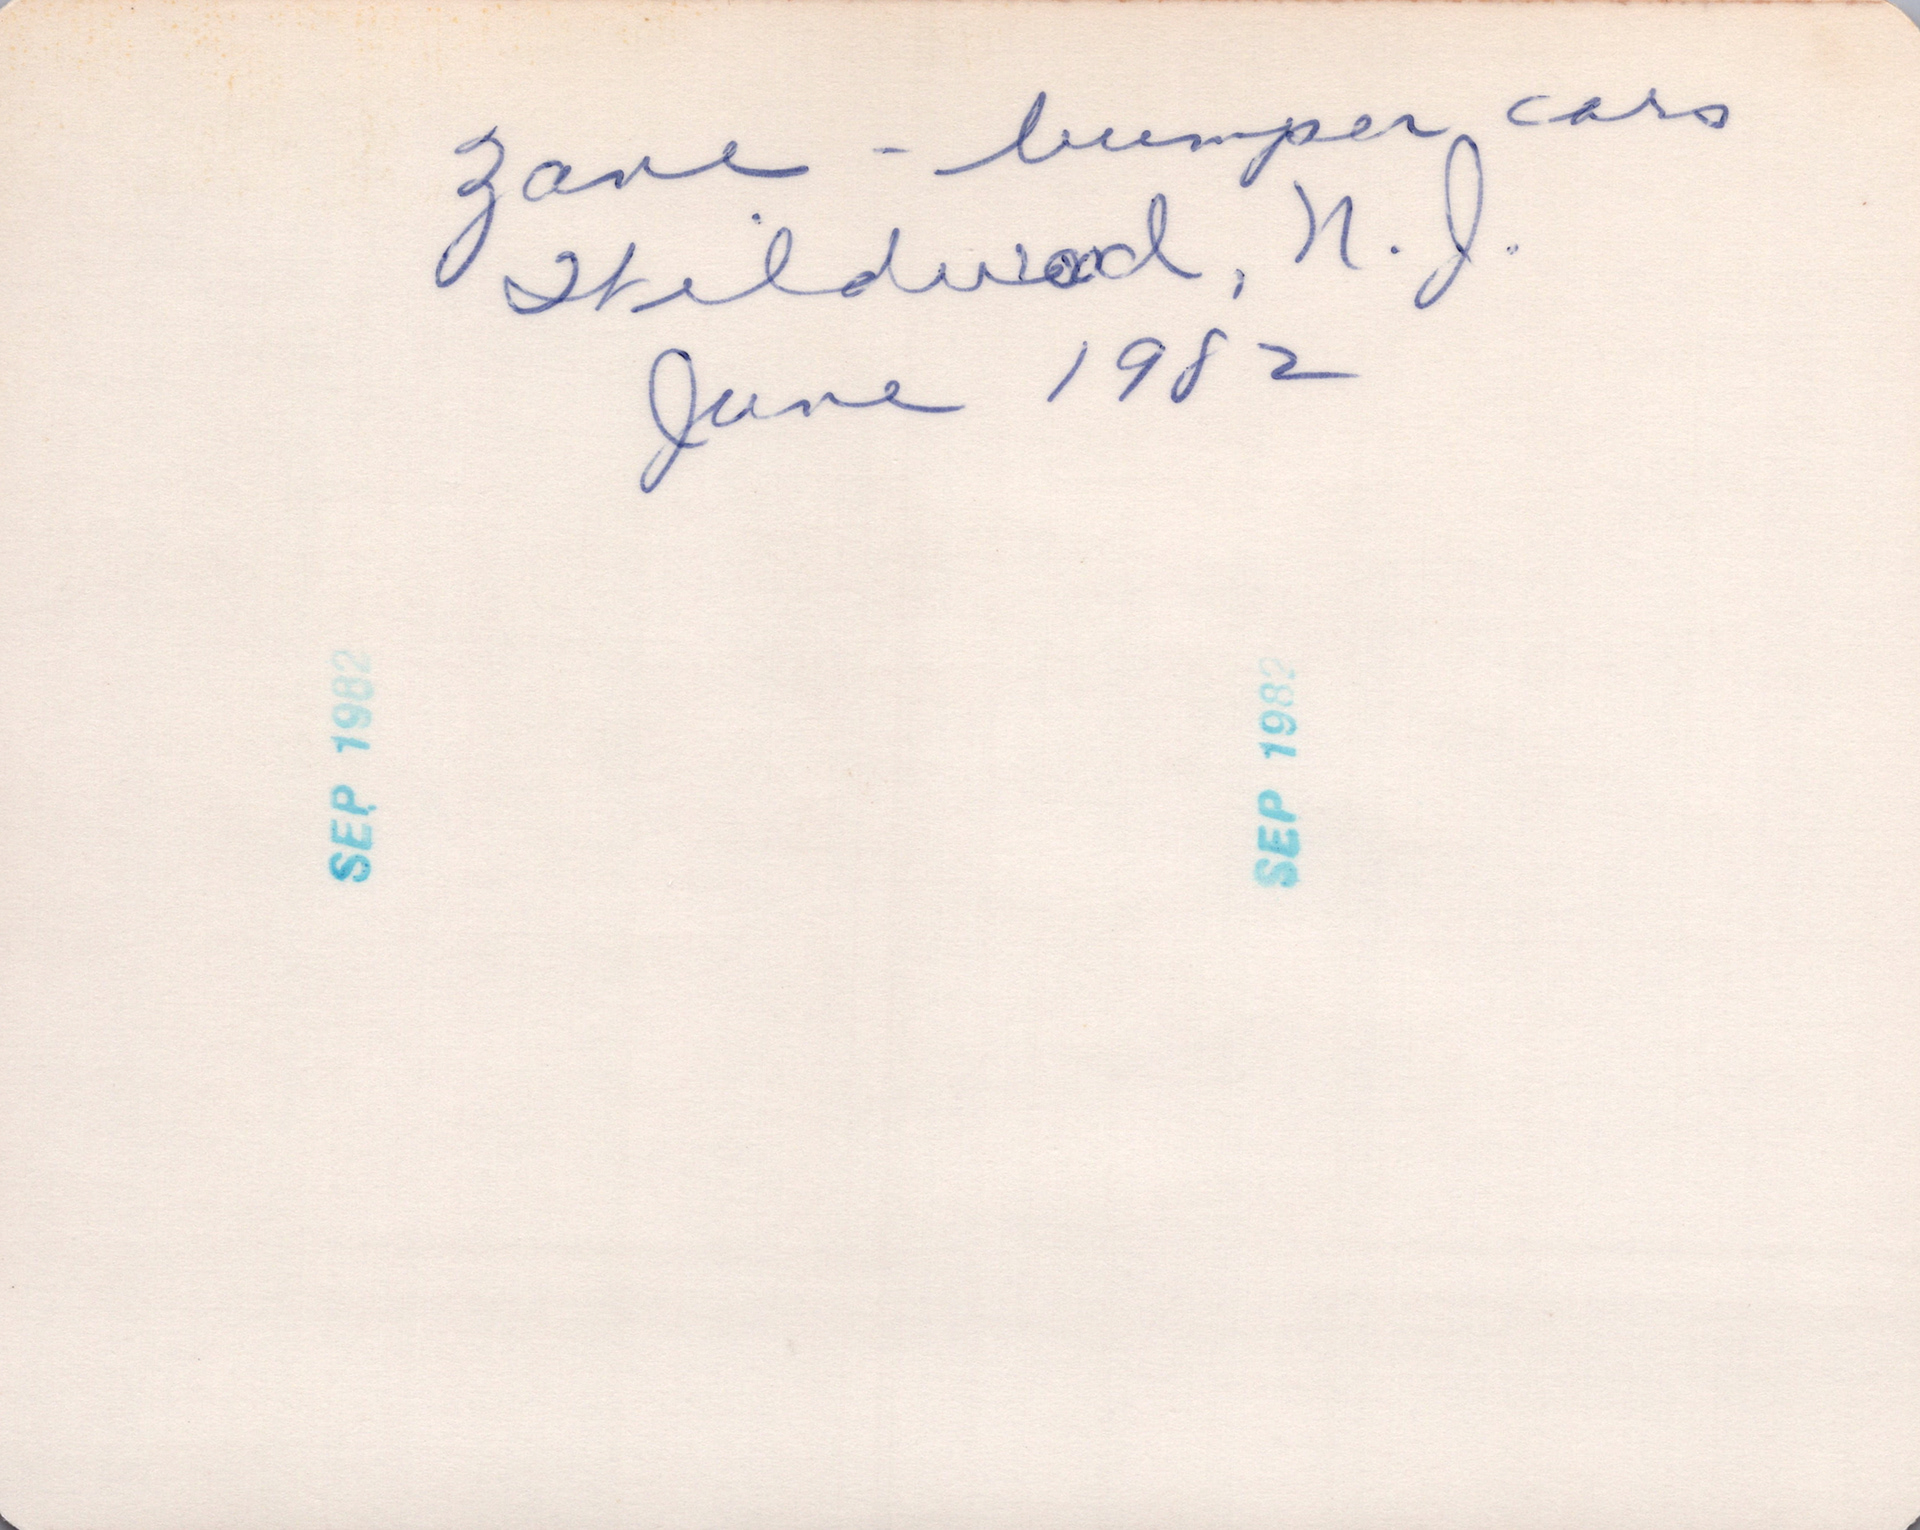 Zane - bumper cars
Wildwood, N.J.
June 1982
SEP 1982
SEP 1982